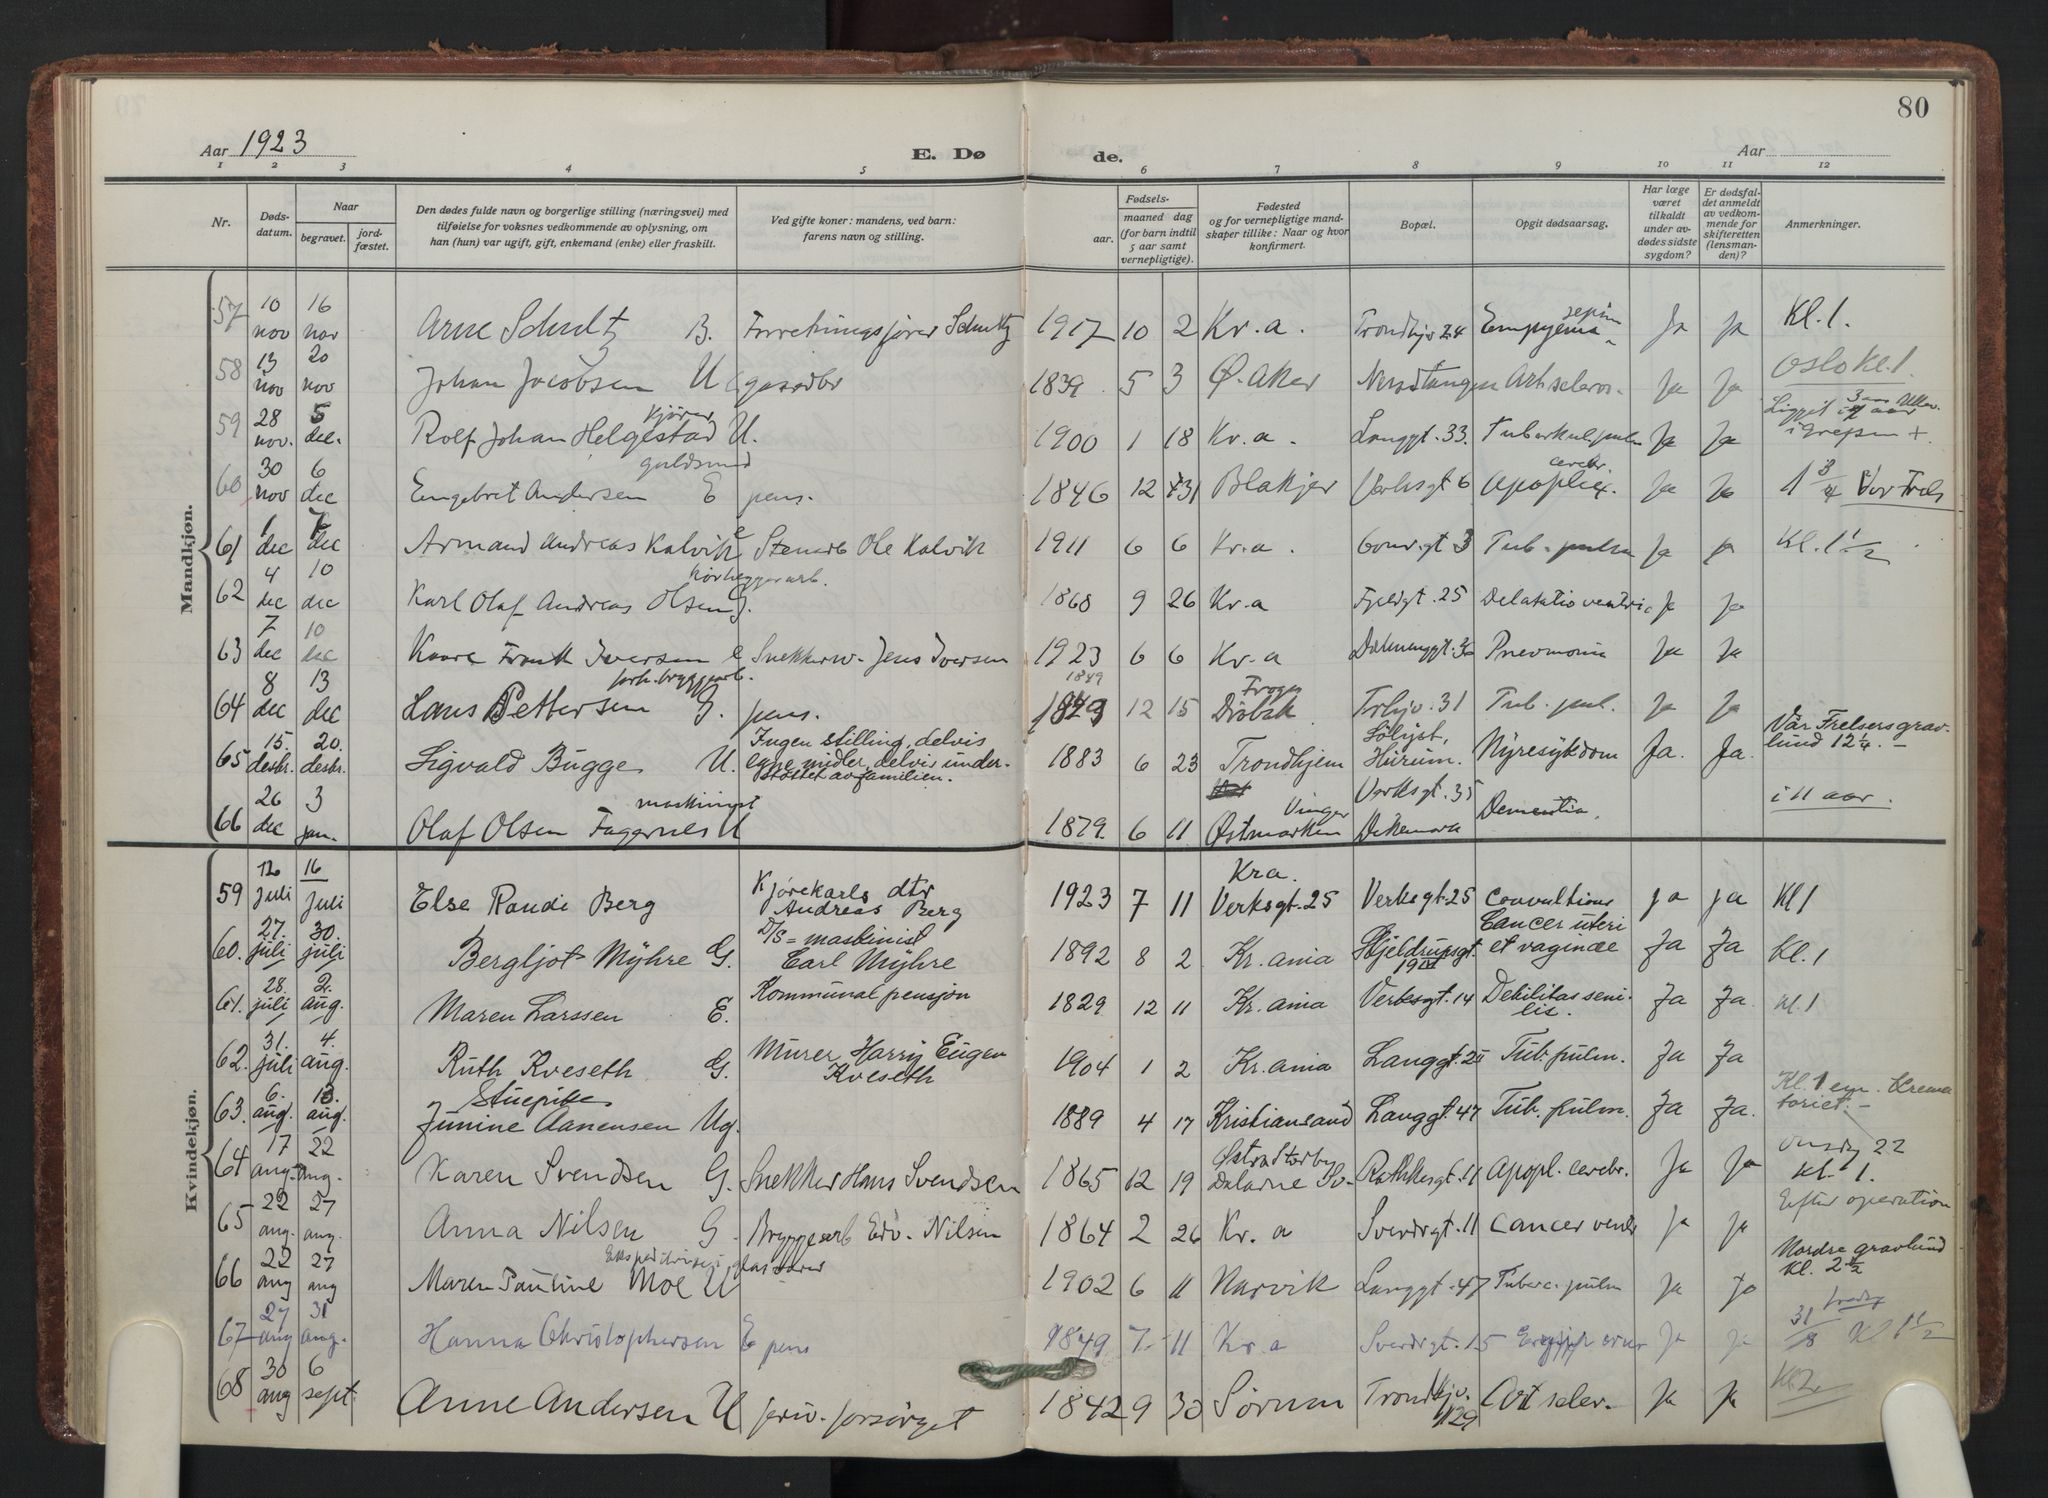 80
Aar 1923
E. Dø
de.
Aar
1 2 3 4 5 6 7 8 9 10 11 12
Nr.
Døds-
datum.
Naar
begravet.
jord-
fæstet.
Den dødes fulde navn og borgerlige stilling (næringsvei) med
tilføielse for voksnes vedkommende av oplysning, om
han (hun) var ugift, gift, enkemand (enke) eller fraskilt.
Ved gifte koner: mandens, ved barn:
farens navn og stilling.
Fødsels-
aar.
maaned dag
(for barn indtil
5 aar samt
vernepligtige).
Fødested
og for vernepligtige mand-
skaper tillike: Naar og hvor
konfirmert.
Bopæl.
Opgit dødsaarsag.
Har læge
været
tilkaldt
under av-
dødes sidste
sygdom?
Er dødsfal-
det anmeldt
av vedkom-
mende for
skifteretten
(lensman-
den)?
Anmerkninger.
Mandkjøn.
57 10 nov 16 nov Arne Schultz B. Forretningsfører Schultz 1917 10 2 Kr.a. Trondhjv 24 Empyema Ja Ja Kl. 1.
58 13 nov 20 nov Johan Jacobsen U 1839 5 3 Ø. Aker Artscleros. Ja Ja Oslo Kl. 1
59 28 nov. 5 dec. Rolf Johan Helgestad kjører U. 1900 1 18 Kr.a. Langgt. 33. Tuberkul. pulm Ja Ja
60 30 nov 6 dec Engebret Andersen guldsmed E pens. 1846 12 31 Blakjer Verksgt 6 Apoplex. cerebr. Ja Ja 1 3/4 Vor Frels
61 1 dec 7 dec Armand Andreas Kalvik Stenarb Ole Kalvik 1911 6 6 Kr.a. 3 Tub. pulm Ja Ja Kl. 1 1/2
62 4 dec 10 dec Karl Olaf Andreas Olsen G. 1868 9 26 Kr.a Fjeldgt. 25 Ja Ja
63 7 dec 10 dec Kaare Frank Iversen Snekkerw. Jens Iversen 1923 6 6 Kr.a Pnevmonia Ja Ja
64 8 dec 13 dec Hans Pettersen forh. bryggearb. G. pens. 1849 12 15 Drøbak Trhjv. 31 Tub. pul. Ja Ja
65 15. desbr. 20. desbr. Sigvald Bugge U. Ingen stilling, delvis
egne midler, delvis under-
støttet av familien. 1883 6 23 Trondhjem Solyst, Hurum. Nyresykdom Ja. Ja. Vår Frelsers grav-
lund 12 1/4. –
66 26 dec 3 jan. Olaf Olsen Fagernes maskinist U 1879. 6 11 Vinger Østmarken Verksgt. 35 Dikemark Dementia. i 11 aar.
Kvindekjøn.
59 12 juli 16 juli Else Randi Berg Kjørekarls dtr
Andreas Berg 1923 7 11 Kra. Verksgt. 25 Verksgt. 25 Convultions Ja Ja Kl 1
60. 27. juli 30. juli Bergljot Myhre G. D/S = maskinist
Carl Myhre 1892 8 2 Kr.ania Skjeldrupsgt. 19 IV Cancer uteri
et vaginae Ja Ja Kl. 1
61. 28. juli 2. aug. Maren Larssen E. Kommunal pensjon 1829 12 11 Kr.ania Verksgt. 14 Debilitas seni-
lis. Ja Ja. Kl. 1
62. 31. juli 4. aug. Ruth Kveseth G. Murer Harry Eugen
Kveseth 1904 1 2 Kr.ania Langgt. Tub. pulm. Ja Ja
63. 6. aug. 13. aug. Stuepike
Junine Aanensen Ug. 1889 4 17 Kristiansand Langgt. 47 Tub. pulm. Ja Ja. Kl. 1 Krema
toriet. –
64 17 aug. 22 aug. Karen Svendsen G. Snekker Hans Svendsen 1865 12 19 Dalarne Sv. Rathkesgt. 11 Apopl. cerebr. Ja Ja Onsdg 22
Kl. 1.
65 22 aug. 27 aug. Anna Nilsen G. Bryggearb Edv. Nilsen 1864 2 26 Kr.a Sverdrgt. 11 Cancer ventr Ja Ja Efter operation
66 22 aug 27 aug Maren Pauline Moe U Ekspeditrise i glasvarer 1902 6 11 Narvik Langgt. 47 Tuberc. pulm Ja Ja Nordre gravlund
Kl. 2 1/2
67 27 aug 31 aug. Hanna Christophersen E pens 1849 7 11 Kr.a Sverdrgt. 15 Ja Ja 31/8 fredag Kl 1 1/2
68 30 aug 6 sept. Anne Andersen U priv. forsørget 1842 9 30 Sørum Trondhjv. 129 Art scler. Ja Ja Kl. 2